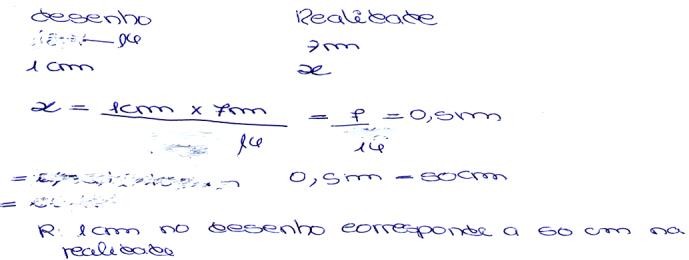 desenho Realidade
14 7m
1cm x
x = 1cm x 7m / 14 = 7 / 14 = 0,5m
= 0,5m = 50cm
=
R: 1cm no desenho corresponde a 50 cm na
realidade